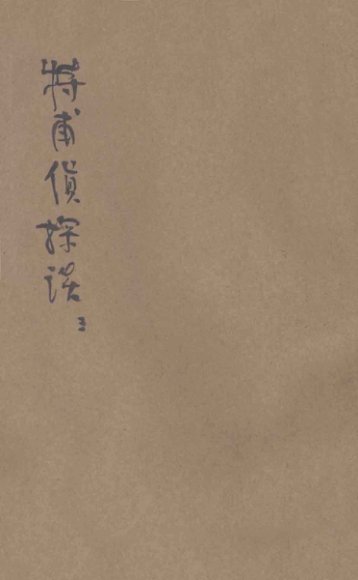 蒋甫偵探談
三